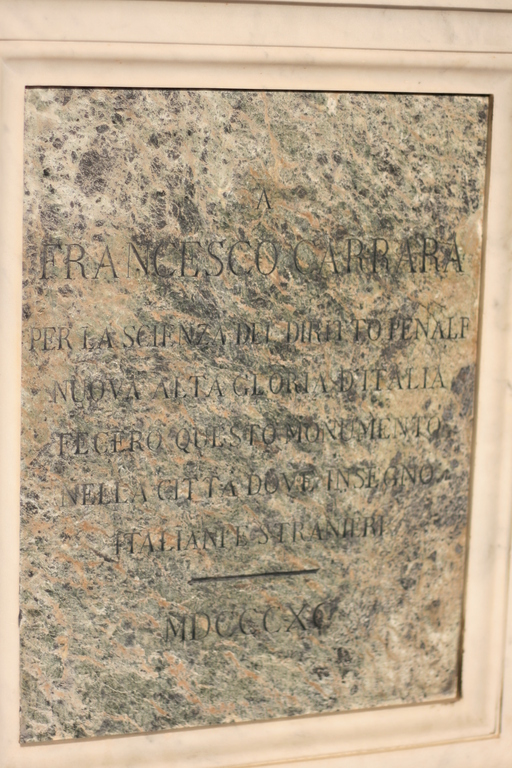 A
FRANCESCO CARRARA
PER LA SCIENZA DEL DIRITTO PENALE
NUOVA ALTA GLORIA D'ITALIA
FECERO QUESTO MONUMENTO
NELLA CITTÀ DOVE INSEGNÒ
ITALIANI E STRANIERI
MDCCCXC